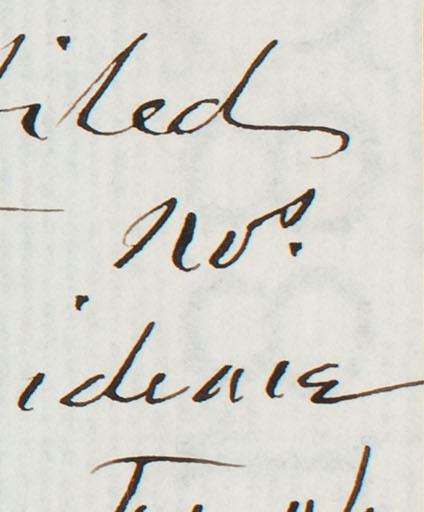 filed
Nos.
idence